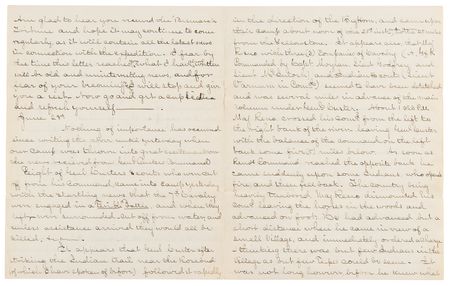 Am glad to hear you receive the Bismarck
Tribune and hope it may continue to come
regularly, as it will contain all the latest news
in connection with the expedition. I fear by
the time this letter reaches, what I have written
will be old and uninteresting news, and for
fear of your I will stop and give
you a rest
and refresh yourself
June
Nothing of importance has occurred
since writing the above until yesterday when
our Camp was thrown into great excitement on
the news received from Genl Custers Command
Eight of Genl Custers scouts who went out
from his command, came into camp yesterday
with the startling news that the 7th Cavalry
were engaged in a battle and when they
left were surrounded, cut off from water, and
unless assistance arrived they would all be
killed,
It appears that Genl Custer after
striking the Indian trail near the Rosebud
(of which I have spoken of before) followed it rapidly
in the direction of the Bighorn, and came upon
their Camp about noon of the 25th inst, miles
from the Yellowstone. It appears also, that Maj
Reno with three (3) Company of Cavalry
Commanded by Capt Moylan Lieut Godfrey and
Lieut McIntosh, and Indian scouts (Lieut
Varnum in Comd) seemed to have been detached
and was some in advance of the main
column under Genl Custer. About 1 o'clk P.M.
Maj Reno crossed his from the left to
the right bank of the river leaving Genl Custer
with the balance of the command on the left
bank some miles below. As soon as
Reno's Command reached the opposite bank he
came suddenly upon some Indians, who opened
fire and then fell back. The Country being
heavy timbered Maj Reno dismounted his
leaving the horses in the woods and
advanced on foot. He had advanced but a
short distance when he came in view of a
small Village, and immediately ordered a charge
thinking there was but few Indians in the
Village as but few Tepes could be seen. It
was not long however before he knew what